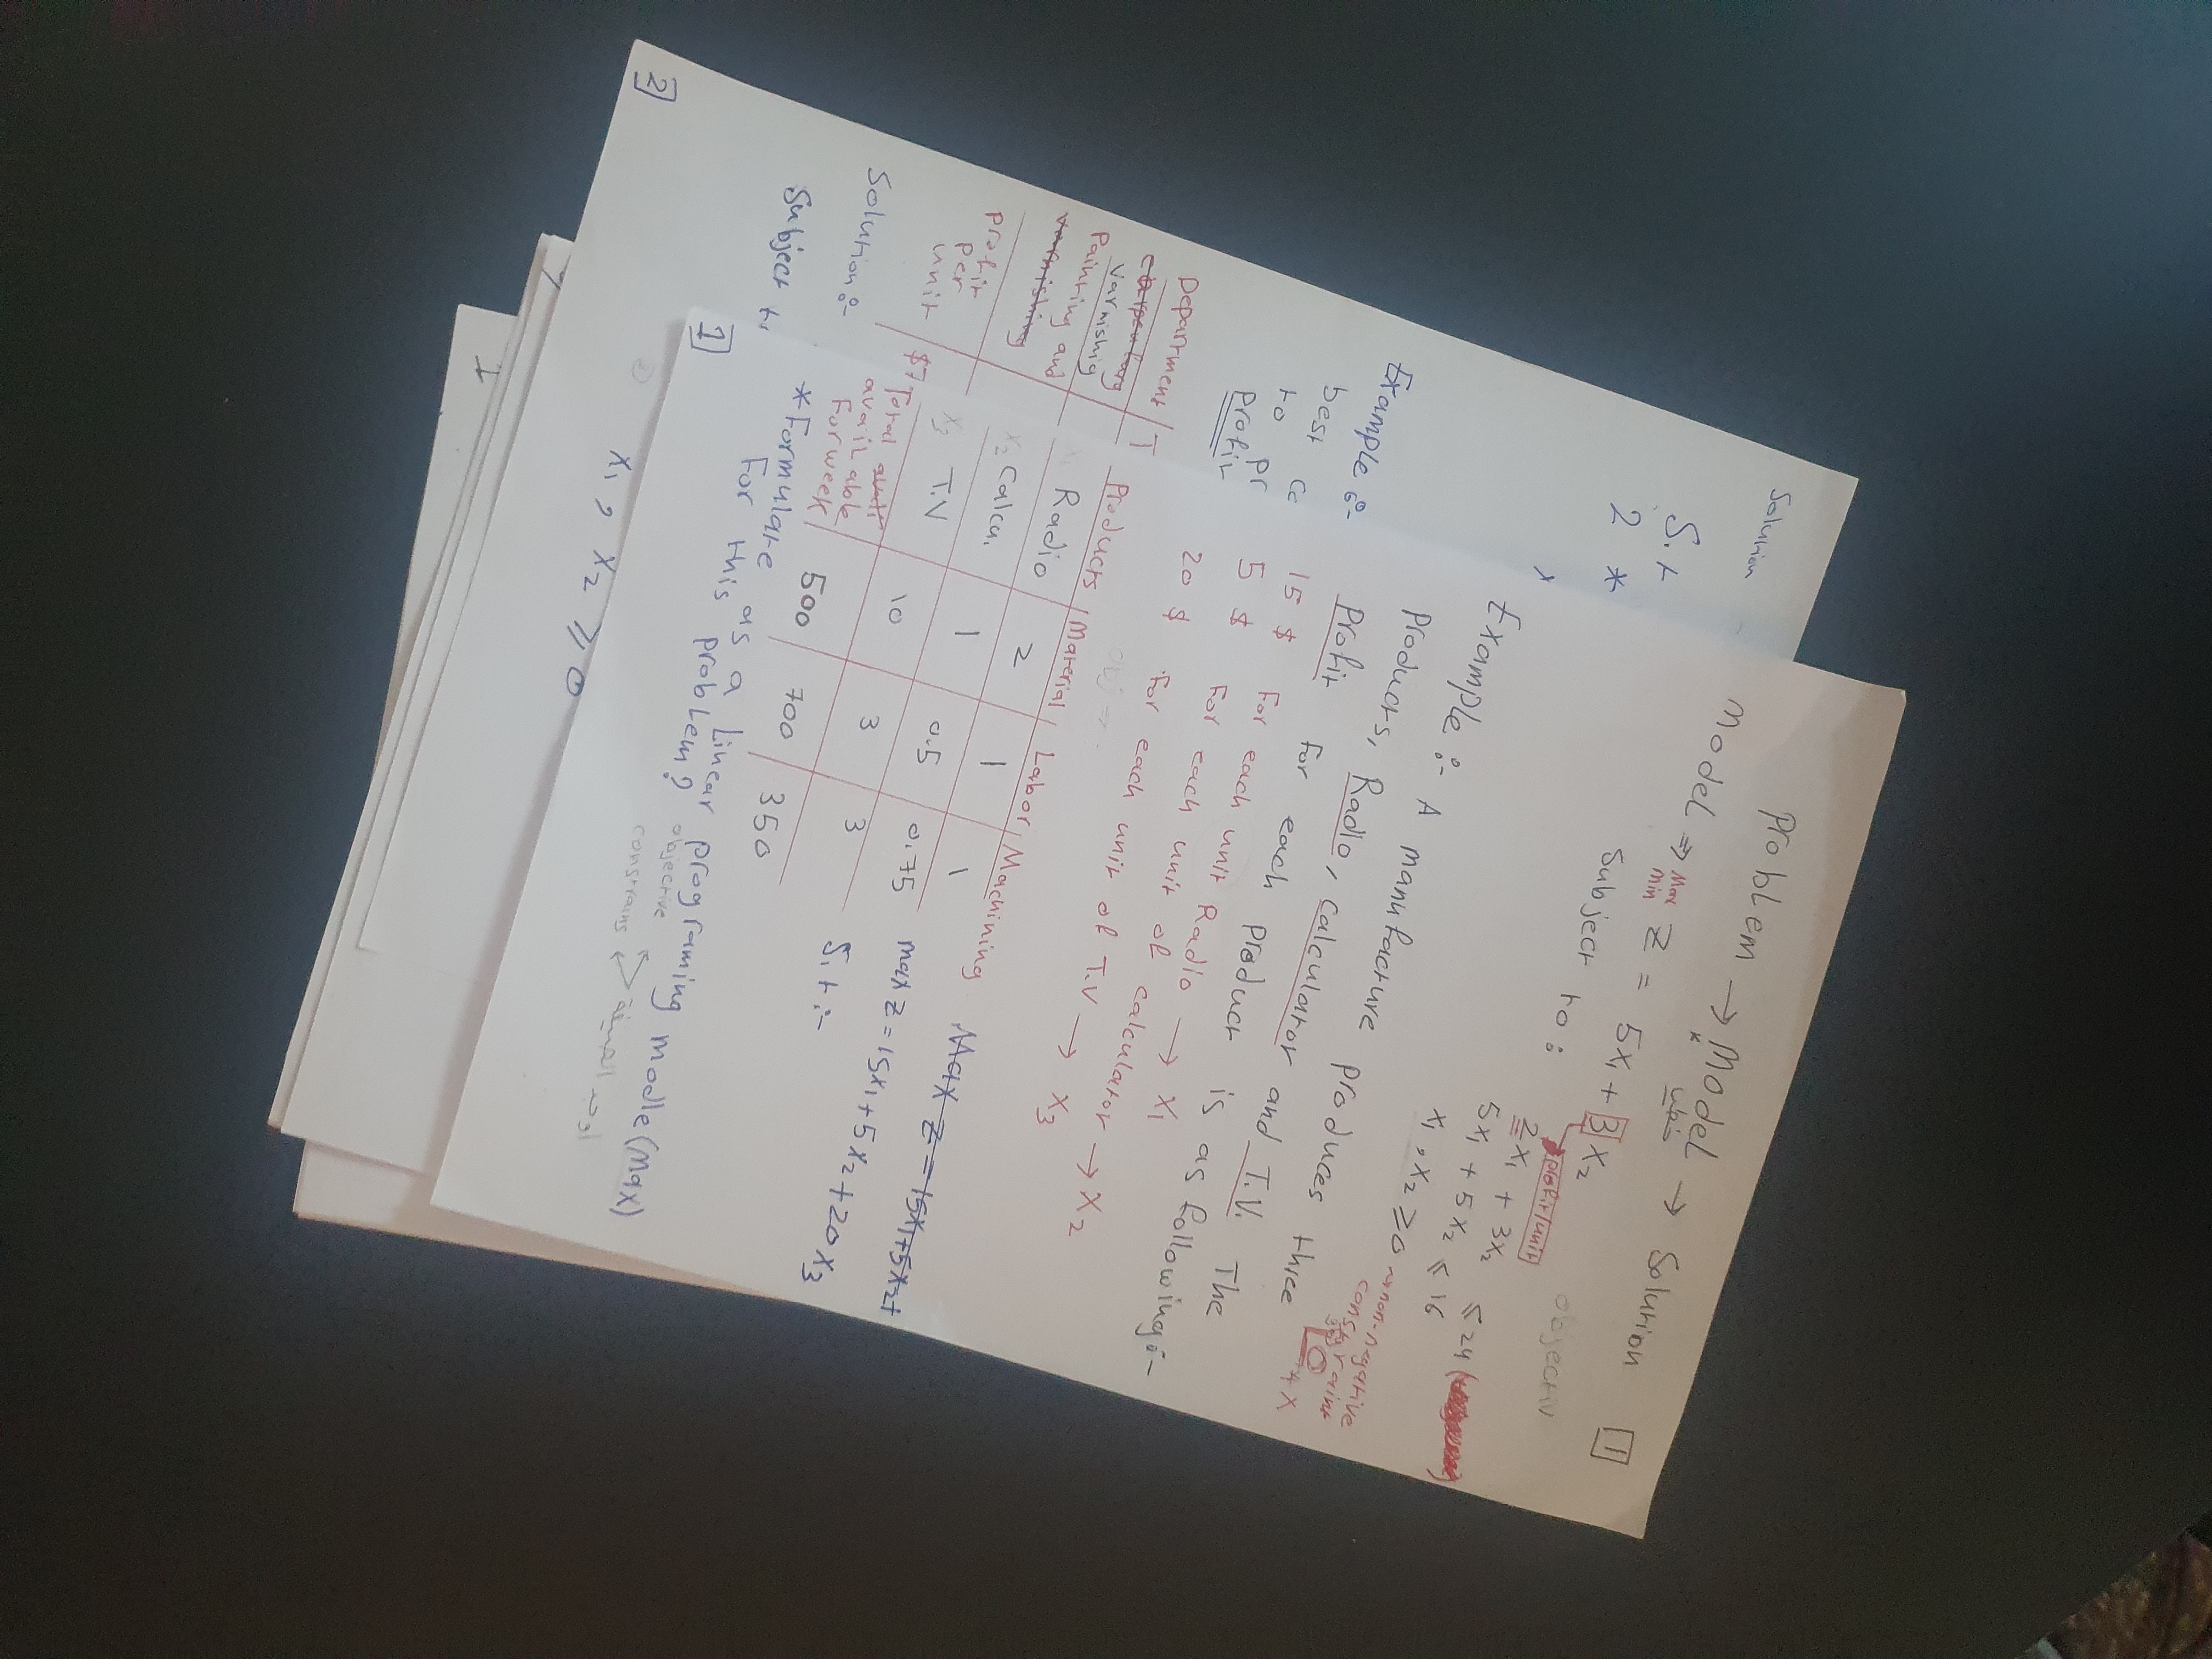 Problem → Model → Solution
1
Model ⇒ Max min Z = 5X₁ + 3X₂
profit/unit
objectiv
Subject to :
2X₁ + 3X₂ ≤ 24
5X₁ + 5X₂ ≤ 16
X₁ , X₂ ≥ 0 → non-negative
constraint
Example :- A manufacture produces three
Products, Radio, calculator and T.V. The
Profit For each product is as following:-
15 $ For each unit Radio → X₁
5 $ For each unit of calculator → X₂
20 $ For each unit of T.V → X₃
obj ⇒
Products Material Labor Machining
X₁ Radio 2 1 1
X₂ Calcu. 1 0.5 0.75
X₃ T.V 10 3 3
Total avail
available
For week 500 700 350
Max Z = 15X₁+5X₂+
max Z = 15X₁+5X₂+20X₃
S.t :-
*Formulate as a Linear programing modle (Max)
For this problem?
objective
constrains
أوجد الصيغة
1
Solution
S.t
2 *
Example :-
best co
to pr
Profit
Department T
carpentary
Varnishig
Painting and
varnishing
profit
per
unit $7
Solution :-
Subject to
X₁ , X₂ ≥ 0
2